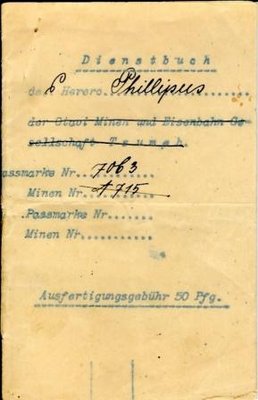 Dienstbuch
des Herero Phillipus
der Otavi Minen und Eisenbahn Ge
sellschaft Tsumeb.
assmarke Nr. 7063
Minen Nr. A 715
Passmarke Nr.......
Minen Nr...........
Ausfertigungsgebühr 50 Pfg.